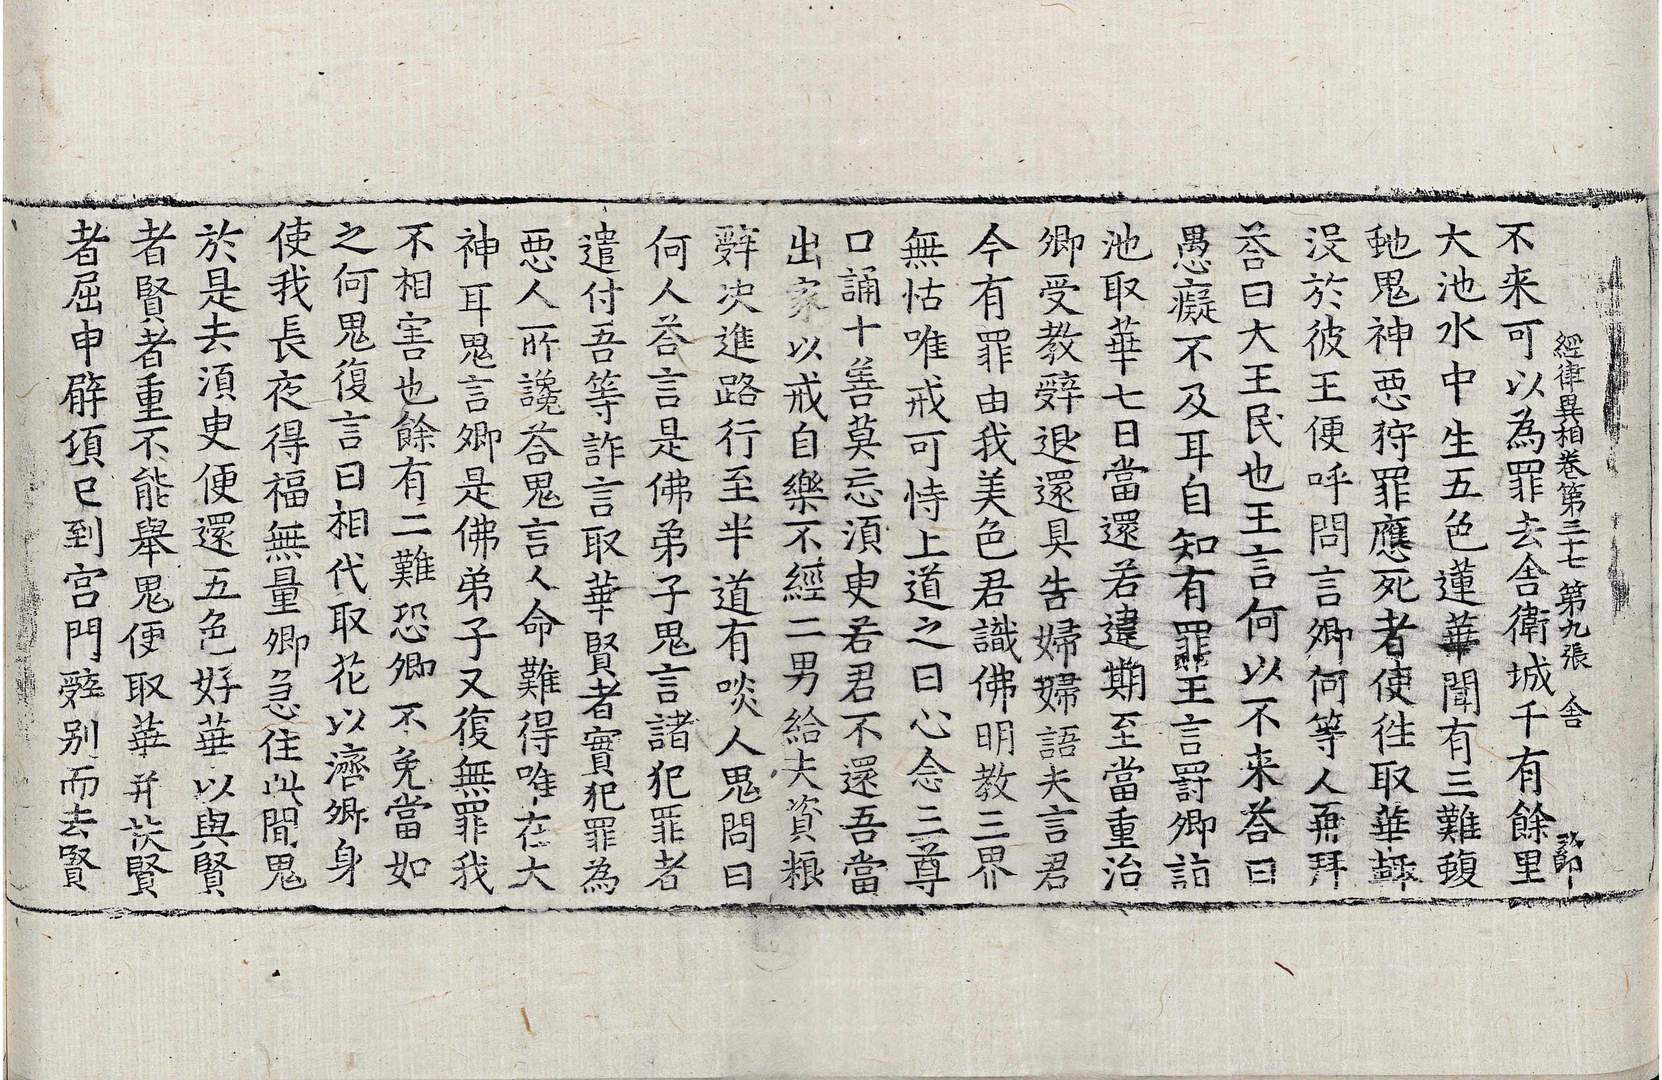 經律異相卷第三十七 第九張 舍
不来可以為罪去舍衛城千有餘里
大池水中生五色蓮華聞有三難蝮
虵鬼神惡狩罪應死者使往取華
没於彼王便呼問言卿何等人無拜
荅曰大王民也王言何以不来荅曰
愚癡不及耳自知有罪王言罸卿詣
池取華七日當還若違期至當重治
卿受教辝退還具告婦婦語夫言君
今有罪由我美色君識佛明教三界
無怙唯戒可恃上道之日心念三尊
口誦十善莫忘須臾若君不還吾當
出家以戒自樂不經二男給夫資粮
辝决進路行至半道有啖人鬼問曰
何人荅言是佛弟子鬼言諸犯罪者
遣付吾等詐言取華賢者實犯罪為
惡人所讒荅鬼言人命難得唯在大
神耳鬼言卿是佛弟子又復無罪我
不相害也餘有二難恐卿不免當如
之何鬼復言曰相代取花以濟卿身
使我長夜得福無量卿急住此間鬼
於是去須臾便還五色好華以與賢
者賢者重不能舉鬼便取華并挾賢
者屈申臂頃已到宫門辝别而去賢